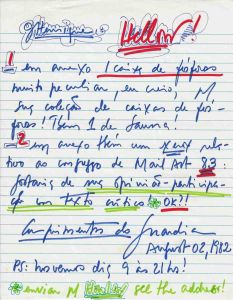 J. Henrique Hellow!
1 em anexo 1 caixa de fósforos
muito peculiar, eu envio, p/
sua coleção de caixas de fós-
foros! Tbem 1 de Sauna!
2 em anexo tém um xerox rela-
tivo ao congresso de Mail Art 83:
gostaria de sua opinião-participa-
ção um texto crítico OK!!
Cumprimentos do
August 02, 1982
PS: nos vemos dia 9 às 21hs!
enviar p/ see the address!